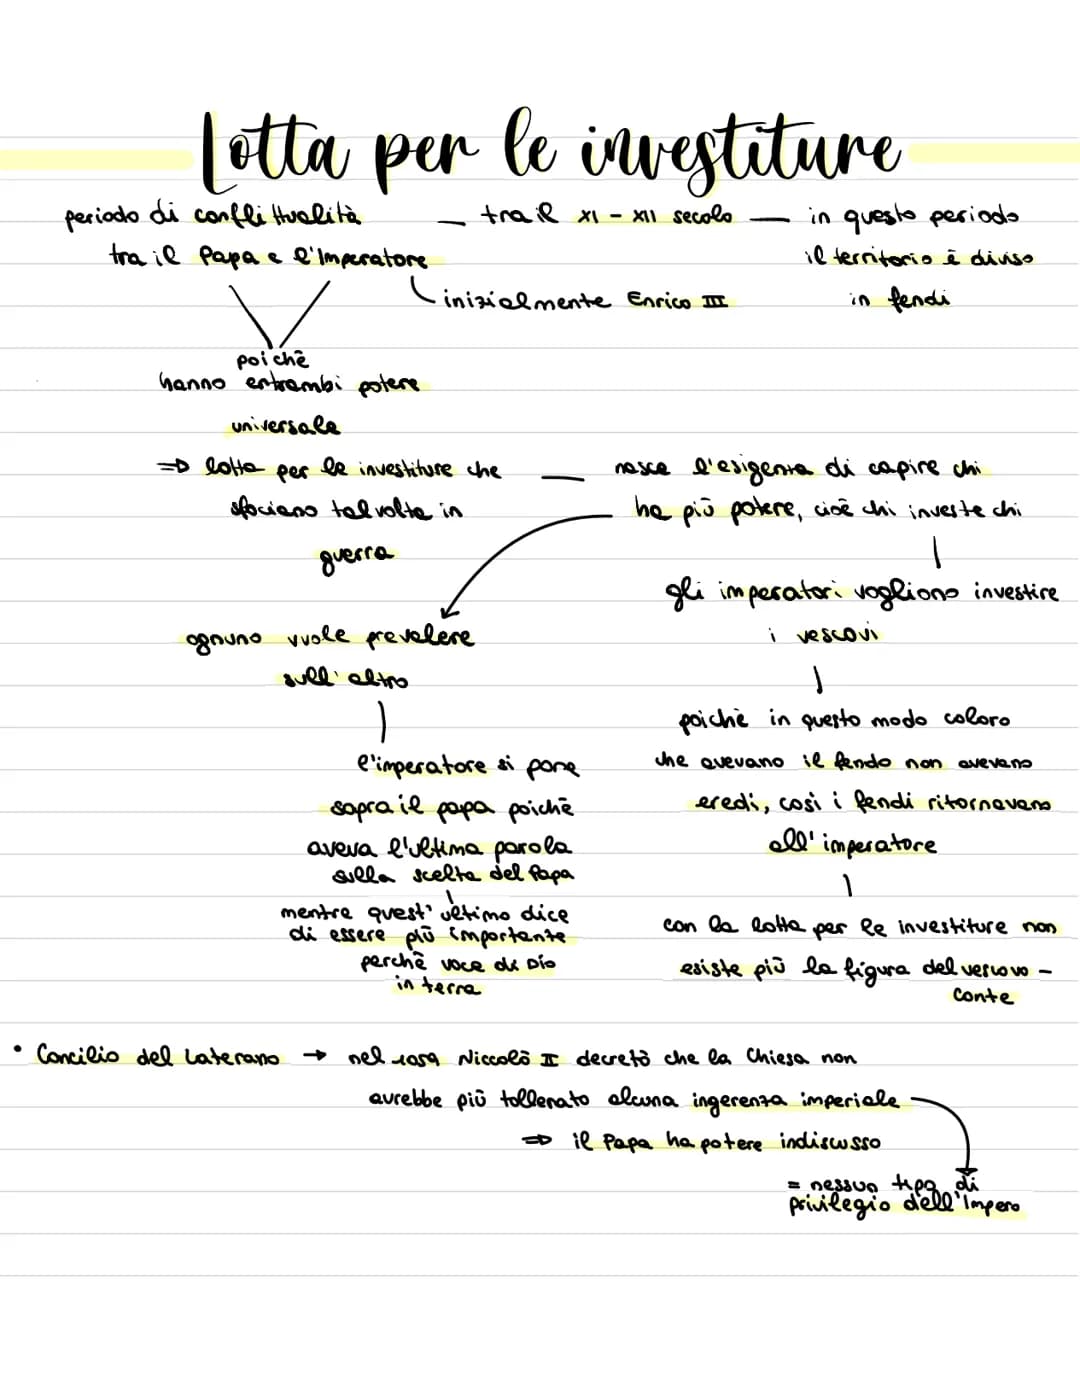 Lotta per le investiture
periodo di conflittualità — tra il XI - XII secolo — in questo periodo
tra il Papa e l'Imperatore il territorio è diviso
inizialmente Enrico III in feudi
poichè
hanno entrambi potere
universale
=> lotta per le investiture che — nasce l'esigenza di capire chi
sfociano talvolta in ha più potere, cioè chi investe chi
guerra
gli imperatori vogliono investire
i vescovi
ognuno vuole prevalere
sull'altro
poichè in questo modo coloro
che avevano il feudo non avevano
eredi, così i feudi ritornavano
all'imperatore
l'imperatore si pone
sopra il papa poichè
aveva l'ultima parola
sulla scelta del Papa
mentre quest'ultimo dice
di essere più importante
perchè voce di Dio
in terra
con la lotta per le investiture non
esiste più la figura del vescovo -
conte
• Concilio del Laterano → nel 1059 Niccolò II decretò che la Chiesa non
avrebbe più tollerato alcuna ingerenza imperiale
=> il Papa ha potere indiscusso
= nessun tipo di
privilegio dell'Impero